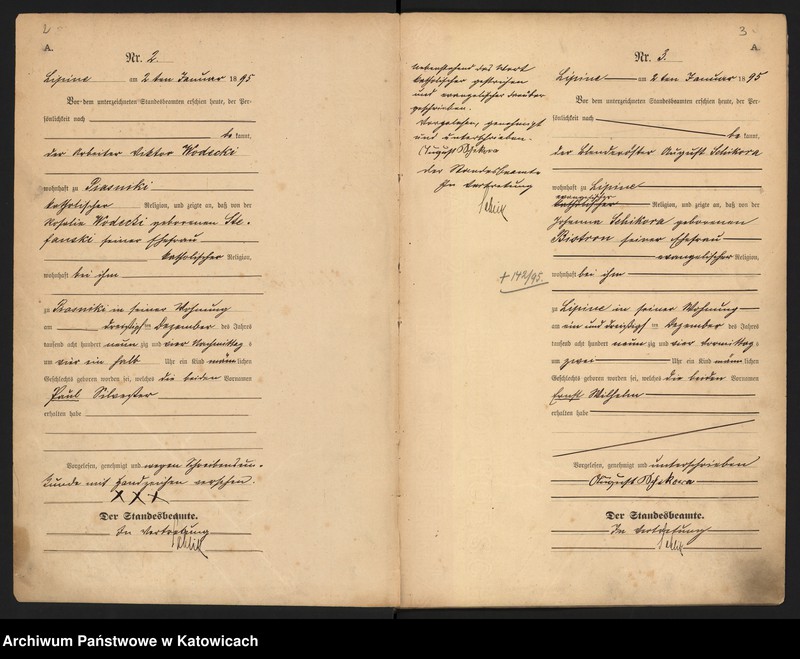 2
A.
Nr. 2.
Lipine am 2 ten Januar 1895
Vor dem unterzeichneten Standesbeamten erschien heute, der Per-
sönlichkeit nach
be kannt,
der Arbeiter Viktor Wodecki
wohnhaft zu Piasniki
katholischer Religion, und zeigte an, daß von der
Rosalie Wodecki geborenen Ste-
fanski seiner Ehefrau
katholischer Religion,
wohnhaft bei ihm
zu Piasniki in seiner Wohnung
am dreißigsten Dezember des Jahres
tausend acht hundert neunzig und vier Nachmittags
um vier ein halb Uhr ein Kind männlichen
Geschlechts geboren worden sei, welches die beiden Vornamen
Paul Silvester
erhalten habe
Vorgelesen, genehmigt und wegen Schreibensun-
kunde mit Handzeichen versehen.
XXX
Der Standesbeamte.
In Vertretung
nebenstehend das Wort
katholischer gestrichen
und evangelischer darüber
geschrieben.
Vorgelesen, genehmigt
und unterschrieben.
August Schikora
Der Standesbeamte
In Vertretung
+ 142/95.
3
A.
Nr. 3.
Lipine am 2 ten Januar 1895
Vor dem unterzeichneten Standesbeamten erschien heute, der Per-
sönlichkeit nach
be kannt,
der Blenderöster August Schikora
wohnhaft zu Lipine
evangelischer
katholischer Religion, und zeigte an, daß von der
Johanna Schikora geborenen
Bistron seiner Ehefrau
evangelischer Religion,
wohnhaft bei ihm
zu Lipine in seiner Wohnung
am ein und dreißigsten Dezember des Jahres
tausend acht hundert neunzig und vier Vormittags
um zwei Uhr ein Kind männlichen
Geschlechts geboren worden sei, welches die beiden Vornamen
Ernst Wilhelm
erhalten habe
Vorgelesen, genehmigt und unterschrieben
August Schikora
Der Standesbeamte.
In Vertretung
Archiwum Państwowe w Katowicach